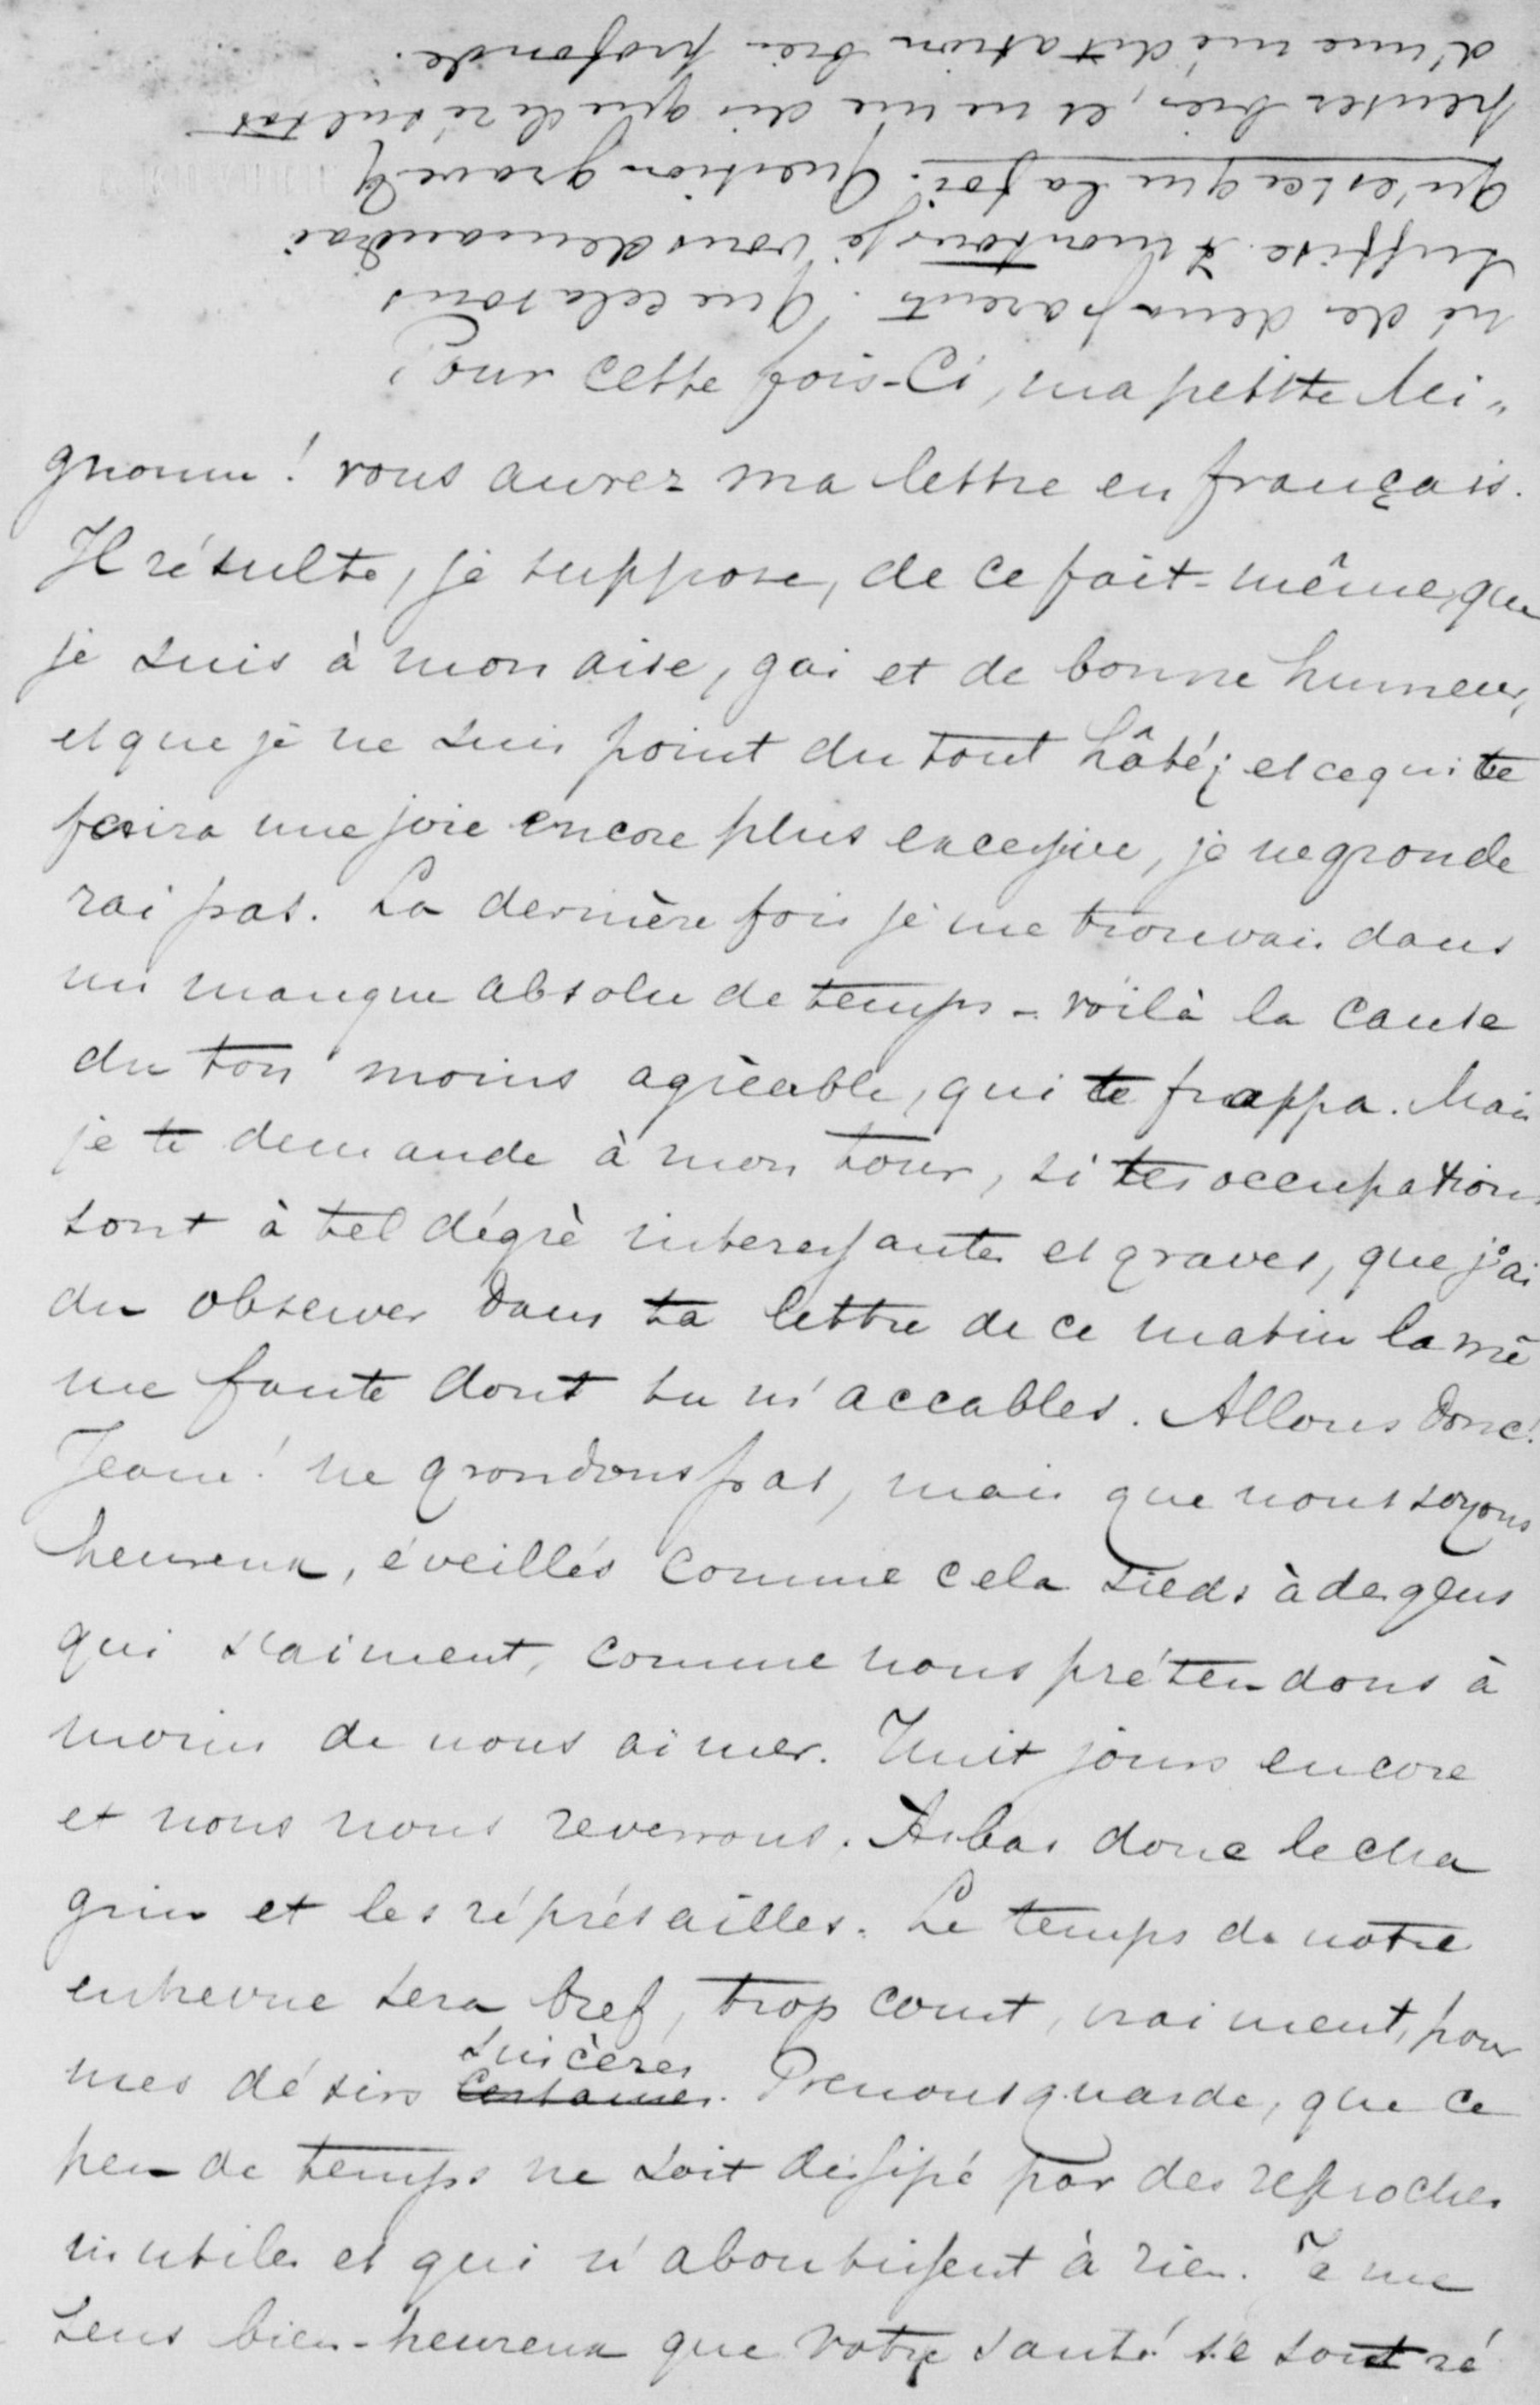 né de deux parents. Que cela vous
suffise. A mon tour je vous demandrai
qu'est ce que la foi. Question grave
penser bien, et ne me dis que le résultat
d'une méditation bien profonde.
Pour cette fois-Ci, ma petite Mi-
gnonn! vous aurez ma lettre en français.
Il résulte, je suppose, de ce fait-même, que
je suis à mon aise, gai et de bonne humeur,
et que je ne suis point du tout hâté; et ce qui te
faira une joie encore plus excessive, je ne gronde
rai pas. La dernière fois je me trouvais dans
un manque absolu de temps - voilà la cause
du ton moins agrèable, qui te frappa. Mais
je te demande à mon tour, si tes occupations
sont à tel dégrè interessantes et graves, que j'ai
du observer dans ta lettre de ce matin la mê
me faute dont tu m'accables. Allons donc!
Jeann! ne grondons pas, mais que nous soyons
heureux, éveillés comme cela sieds à des gens
qui s'aiment, comme nous prétendons à
moins de nous aimer. Huit jours encore
et nous nous reverrons. A bas donc le cha
grin et les réprésailles. Le temps de notre
entrevue sera bref, trop court, vraiment, pour
mes désirs certaines sincères. Prenons guarde, que ce
peu de temps ne soit dissipé par des reproches
inutiles et qui n'aboutissent à rien. Je me
sens bien-heureux que votre santé se soit ré